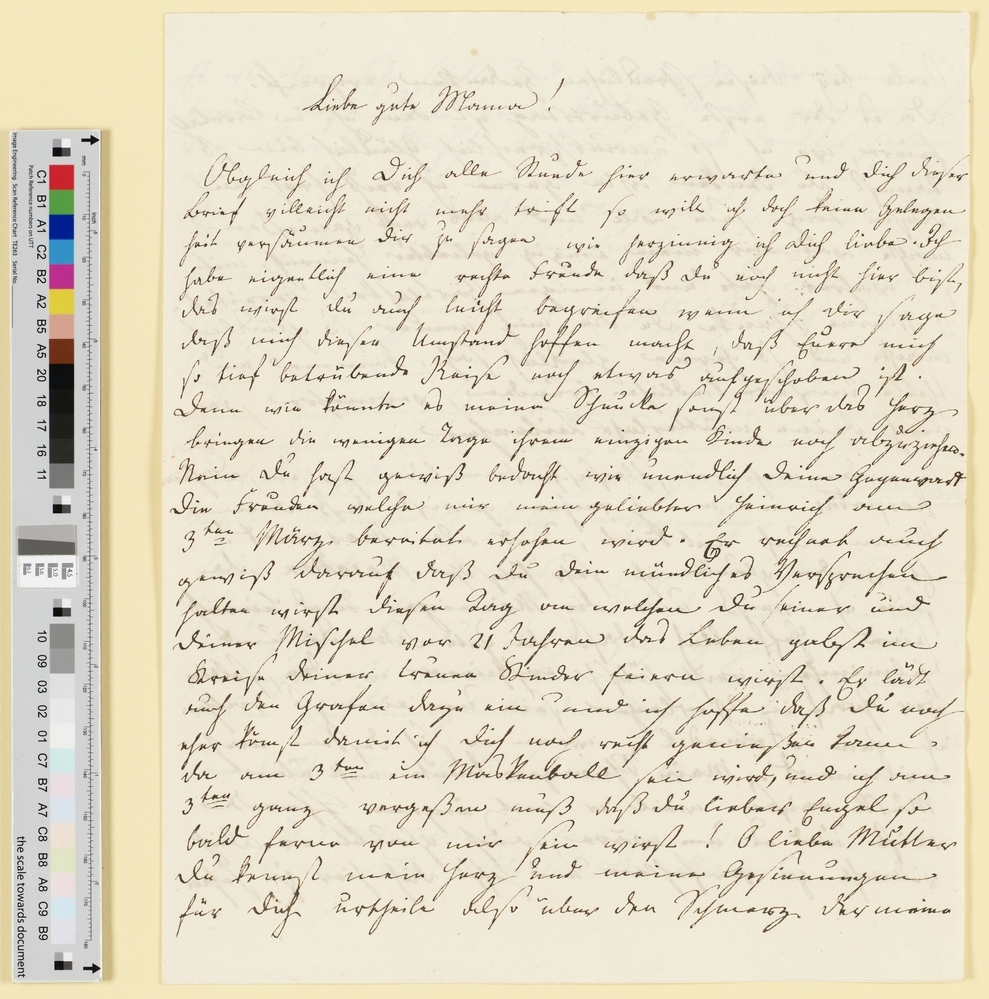 Liebe gute Mama!
Obgleich ich Dich alle Stunde hier erwarte und Dich dieser
Brief villeicht nicht mehr trift so will ich doch keine Gelegen
heit versäumen dir zu sagen wie herzinnig ich Dich liebe. Ich
habe eigentlich eine rechte Freude daß Du noch nicht hier bist,
das wirst du auch leicht begreifen wenn ich dir sage
daß mich dieser Umstand hoffen macht, daß Euere mich
so tief betrübende Reise noch etwas aufgeschoben ist.
Denn wie könnte es meine Schucke sonst über das Herz
bringen die wenigen Tage ihrem einzigen Kinde noch abzuziehen.
Nein Du hast gewiß bedacht wie unendlich Deine Gegenwart
die Freuden welche mir mein geliebter Heinrich am
3ten März bereitet erhöhen wird. Er rechnet auch
gewiß darauf daß Du dein mündliches Versprechen
halten wirst diesen Tag an welchen Du seiner und
deiner Mischel vor 21 Jahren das Leben gabst im
Kreise deiner treuen Kinder feiern wirst. Er lädt
auch den Grafen dazu ein und ich hoffe daß Du noch
eher komst damit ich Dich noch recht genießen kann.
da am 3ten ein Maskenball sein wird, und ich am
3ten ganz vergeßen muß daß du liebes Engel so
bald ferne von mir sein wirst! O liebe Mutter
Du kennst mein Herz und meine Gesinnungen
für Dich urtheile also über den Schmerz der meine
C1 B1 A1 C2 B2 A2 B5 A5 20 18 17 16 11
10 09 03 02 01 C7 B7 A7 C8 B8 A8 C9 B9
the scale towards document